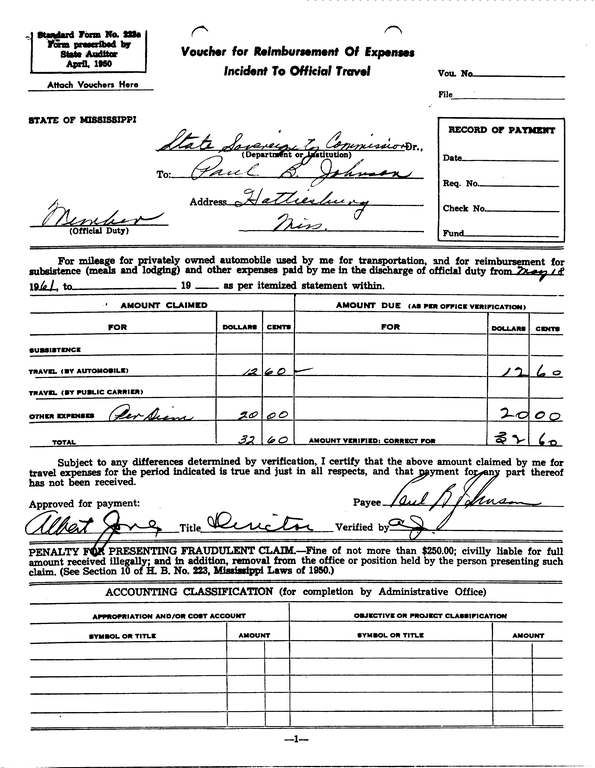 Standard Form No. 223a
Form prescribed by
State Auditor
April, 1950
Attach Vouchers Here
Voucher for Reimbursement Of Expenses
Incident To Official Travel
Vou. No.
File
STATE OF MISSISSIPPI
State Sovereignty Commission Dr.,
(Department or Institution)
To: Paul B. Johnson
Address Hattiesburg
Miss.
Member
(Official Duty)
RECORD OF PAYMENT
Date
Req. No.
Check No.
Fund
For mileage for privately owned automobile used by me for transportation, and for reimbursement for
subsistence (meals and lodging) and other expenses paid by me in the discharge of official duty from May 18
1961, to 19 as per itemized statement within.
AMOUNT CLAIMED AMOUNT DUE (AS PER OFFICE VERIFICATION)
FOR DOLLARS CENTS FOR DOLLARS CENTS
SUBSISTENCE
TRAVEL (BY AUTOMOBILE) 12 60 12 60
TRAVEL (BY PUBLIC CARRIER)
OTHER EXPENSES Per Diem 20 00 20 00
TOTAL 32 60 AMOUNT VERIFIED: CORRECT FOR 32 60
Subject to any differences determined by verification, I certify that the above amount claimed by me for
travel expenses for the period indicated is true and just in all respects, and that payment for any part thereof
has not been received.
Payee Paul B Johnson
Approved for payment:
Albert Jones Title Director Verified by aJ
PENALTY FOR PRESENTING FRAUDULENT CLAIM.—Fine of not more than $250.00; civilly liable for full
amount received illegally; and in addition, removal from the office or position held by the person presenting such
claim. (See Section 10 of H. B. No. 223, Mississippi Laws of 1950.)
ACCOUNTING CLASSIFICATION (for completion by Administrative Office)
APPROPRIATION AND/OR COST ACCOUNT OBJECTIVE OR PROJECT CLASSIFICATION
SYMBOL OR TITLE AMOUNT SYMBOL OR TITLE AMOUNT
—1—